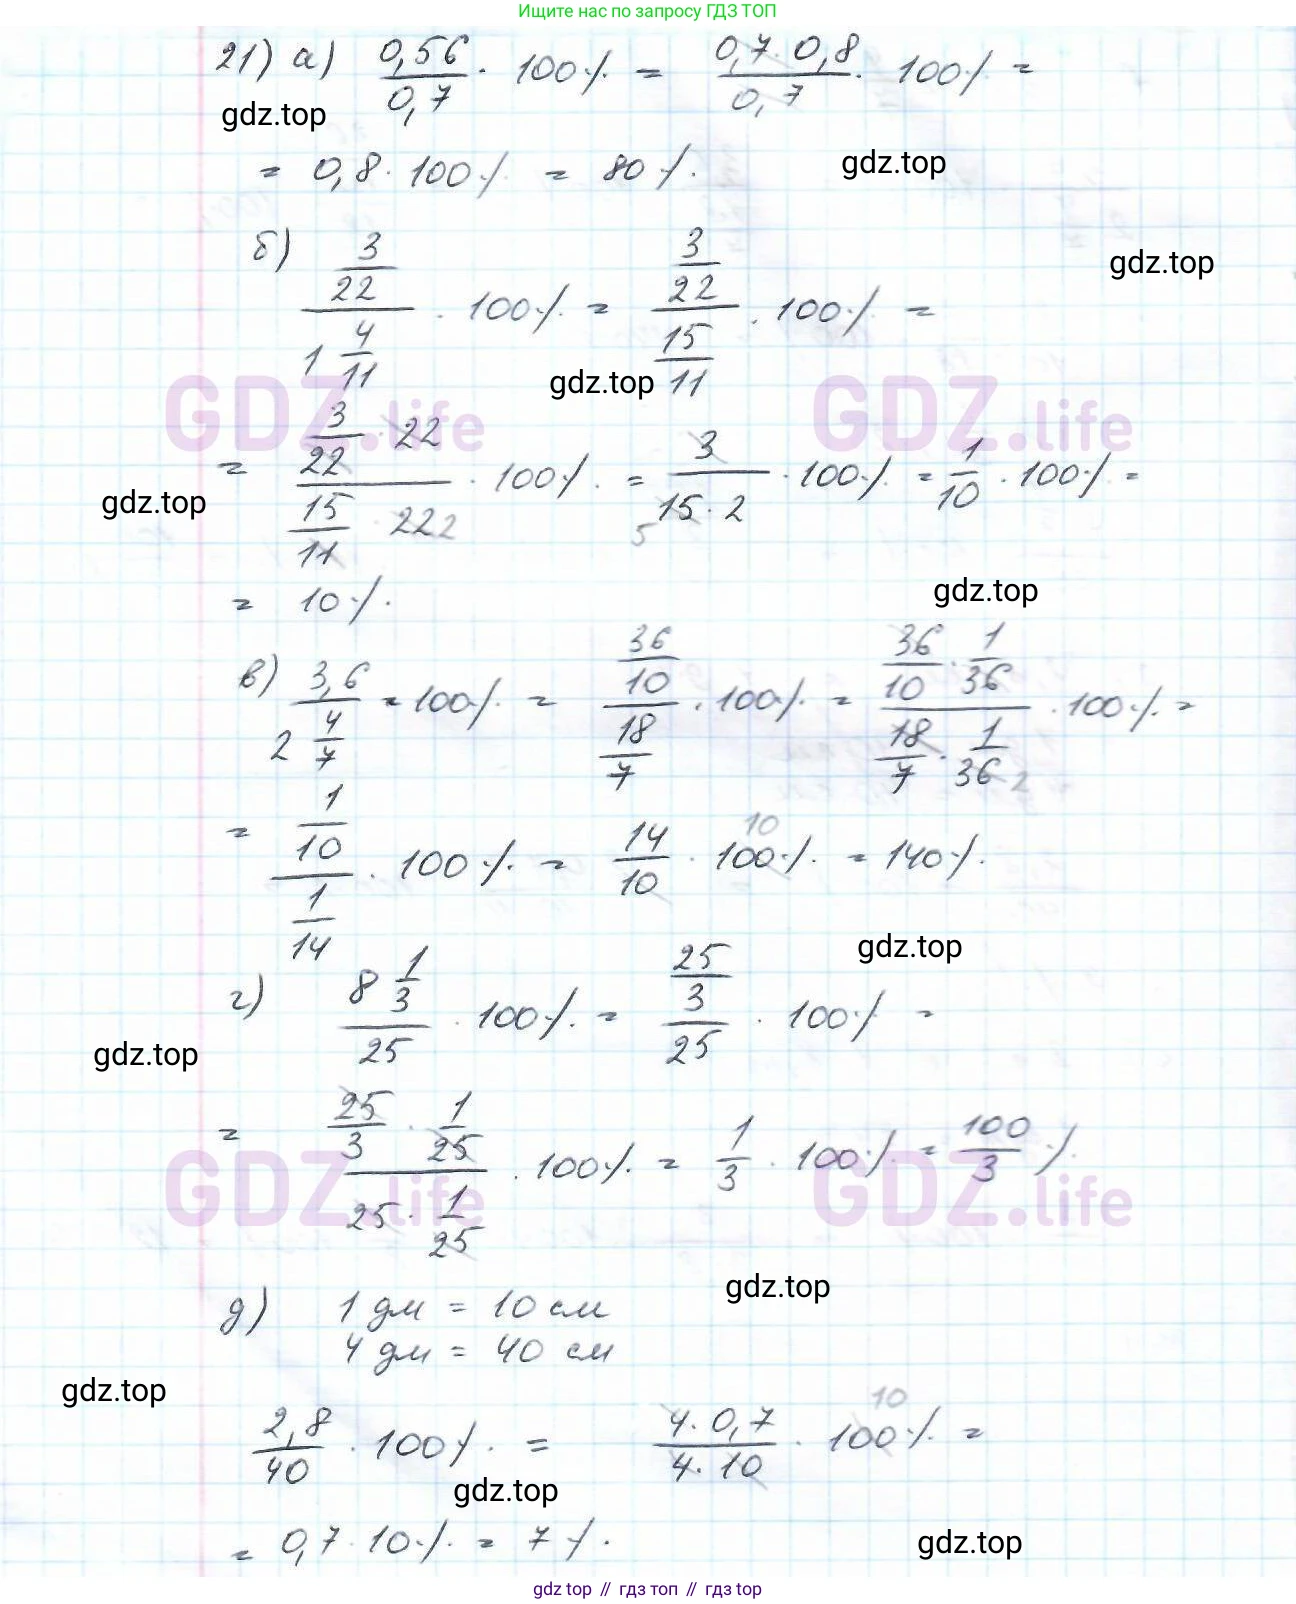 Ищите нас по запросу ГДЗ ТОП
21) а) 0,56/0,7 · 100% = 0,7·0,8/0,7 · 100% =
gdz.top
= 0,8 · 100% = 80%.
gdz.top
б) (3/22)/(1 4/11) · 100% = (3/22)/(15/11) · 100% =
gdz.top
gdz.top
GDZ.life GDZ.life
= (3/22 · 22)/(15/11 · 22 2) · 100% = 3/(15·2) 5 · 100% = 1/10 · 100% =
gdz.top
= 10%.
gdz.top
в) 3,6/(2 4/7) · 100% = (36/10)/(18/7) · 100% = (36/10 · 1/36)/(18/7 · 1/36 2) · 100% =
= (1/10)/(1/14) · 100% = 14/10 · 100% 10 = 140%.
gdz.top
г) (8 1/3)/25 · 100% = (25/3)/25 · 100% =
gdz.top
= (25/3 · 1/25)/(25 · 1/25) · 100% = 1/3 · 100% = 100/3 %.
GDZ.life GDZ.life
gdz.top
д) 1 дм = 10 см
4 дм = 40 см
gdz.top
2,8/40 · 100% = 4·0,7/4·10 · 100% 10 =
gdz.top
= 0,7 · 10% = 7%.
gdz.top
gdz top // гдз топ // гдз top